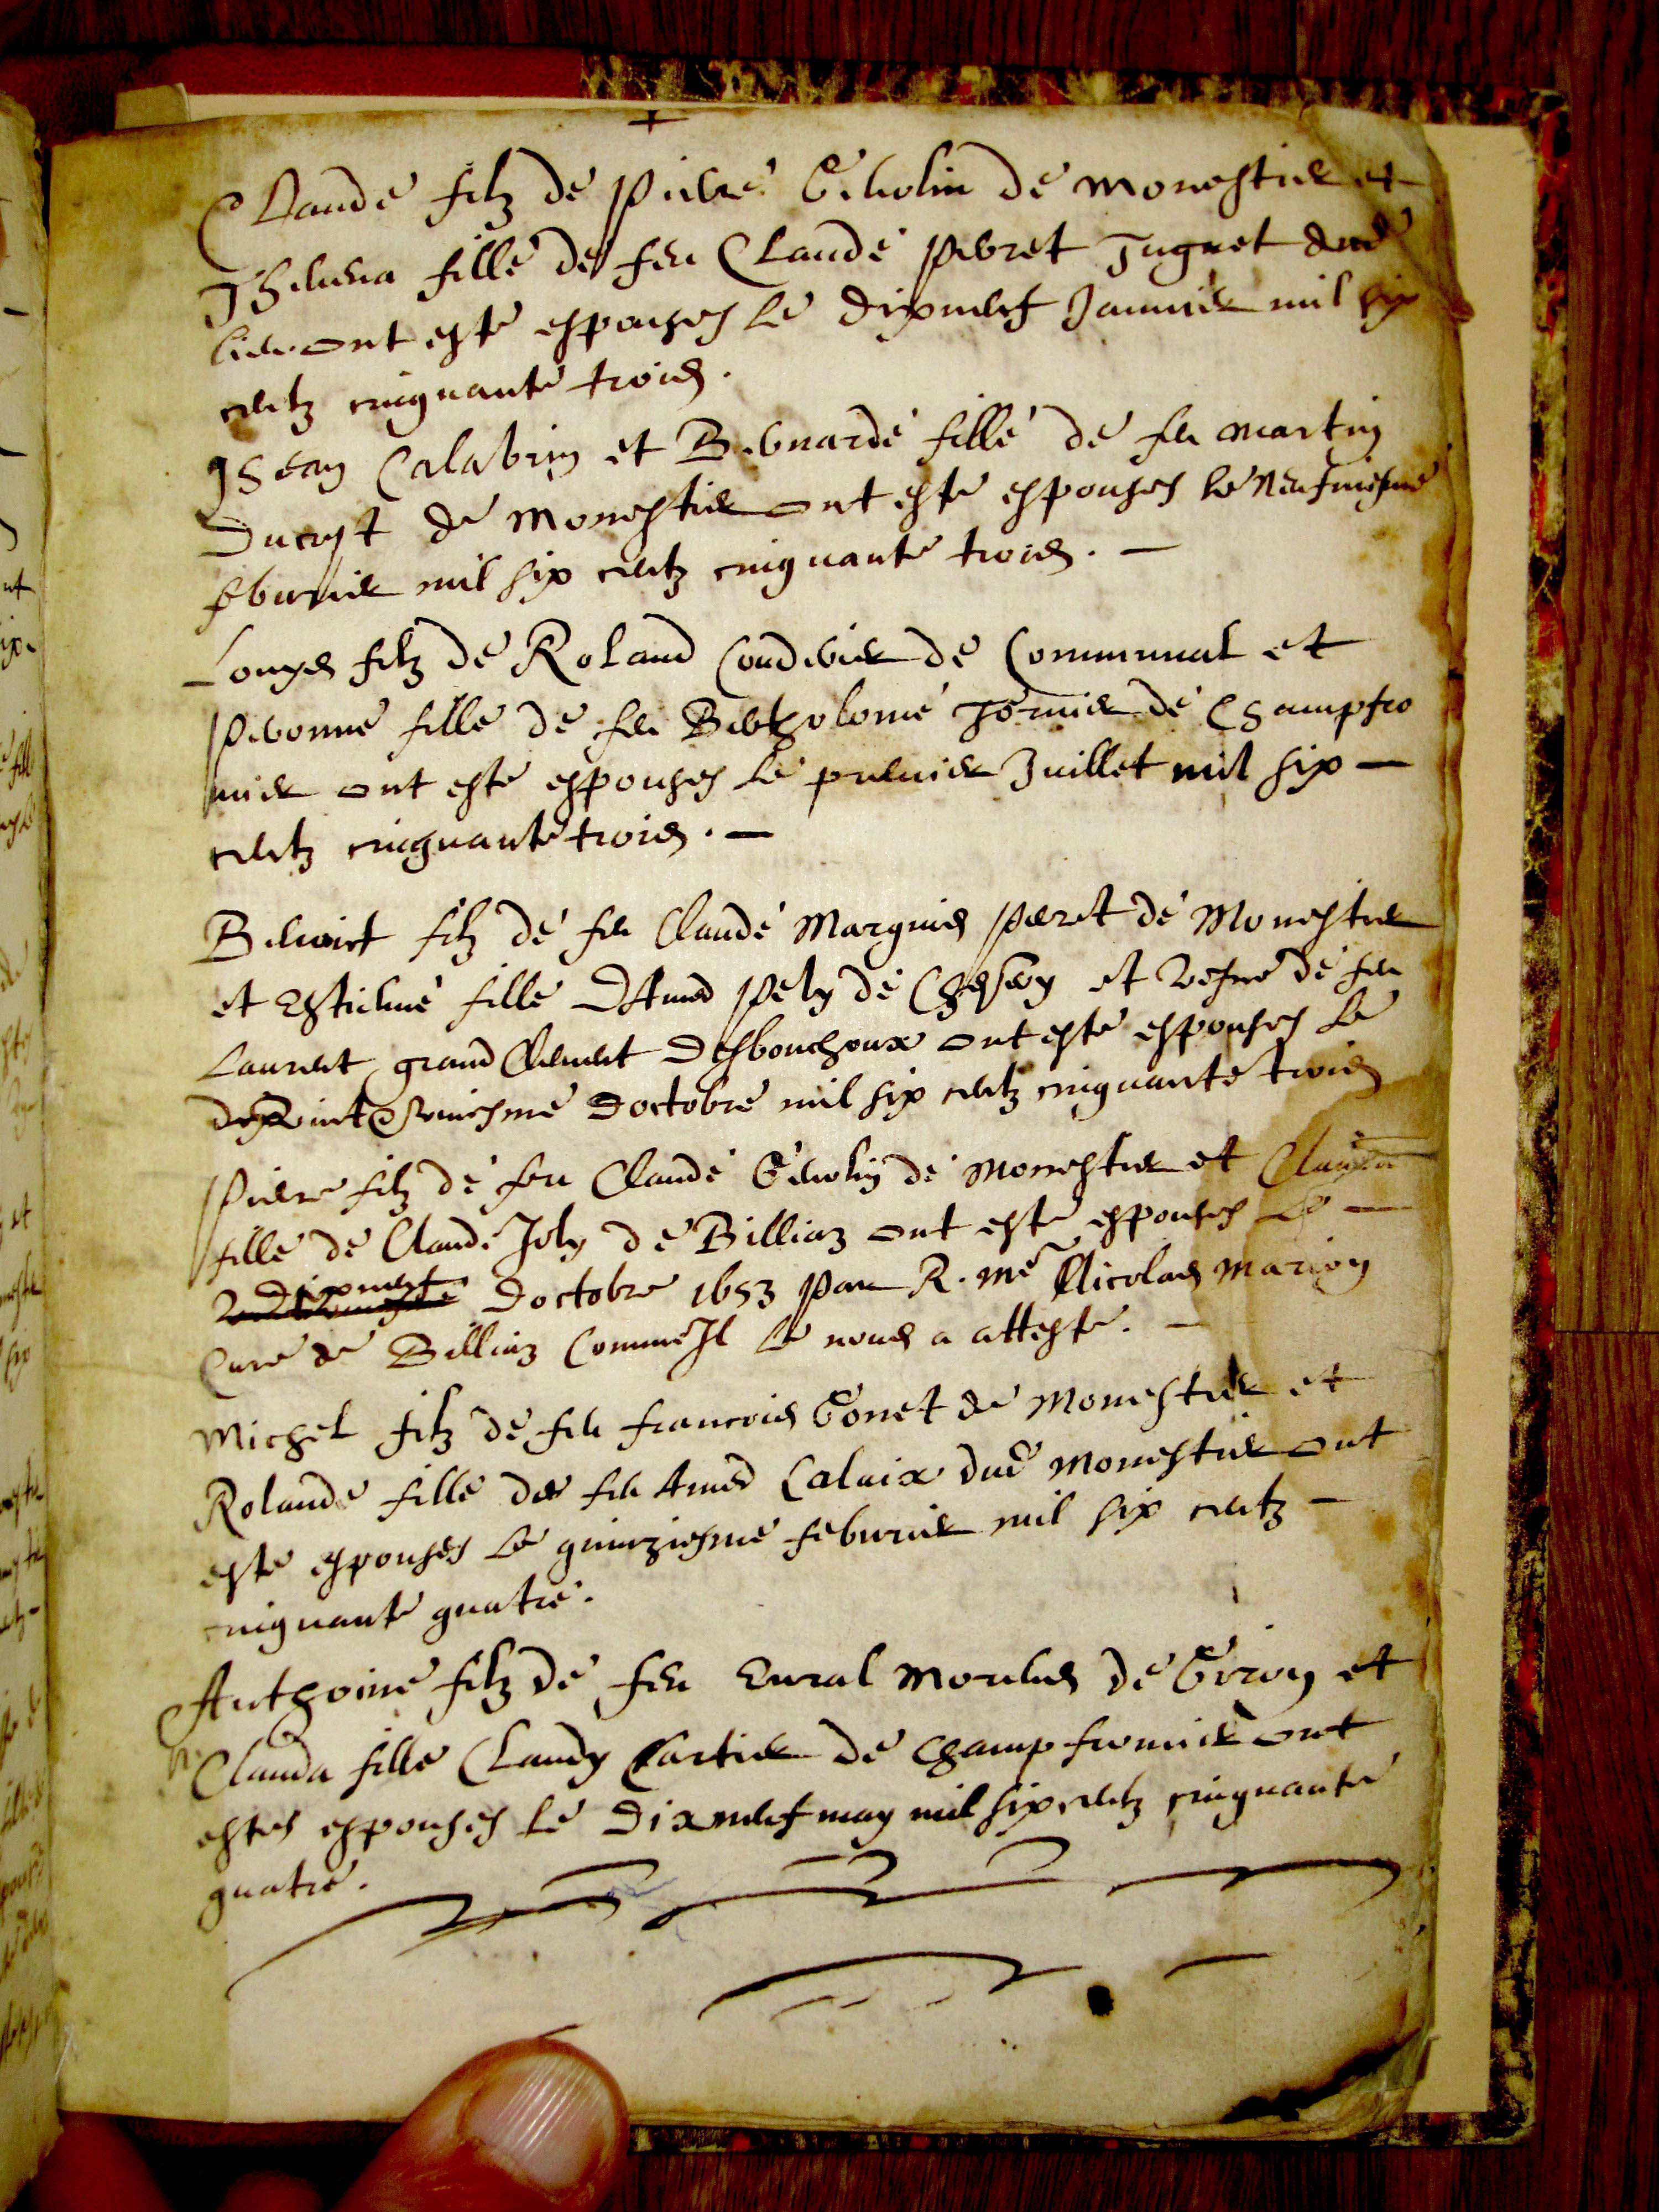 Claude filz de Pierre Evrolin de Monestier et
fille de feu Claude Perret Juguet dud
lieu ont este espouses le dixneuf Januier mil six
centz cinquante trois.
Jhean Calabrin et Bernarde fille de feu Martin
Ducrest de Monestier ont este espouses le neufuiesme
feburier mil six centz cinquante trois. —
Louys filz de Roland Coudurier de Communal et
Peronne fille de feu Bertholome Tornier de Champfro
mier ont este espouses le premier Juillet mil six —
centz cinquante trois. —
Benoist filz de feu Claude Marquis Perret de Monestier
et Estienne fille dAmed Pely de Chesery et vefue de feu
Laurent grand Clement Desbouchoux ont este espouses le
doctobre mil six centz cinquante trois
Pierre filz de feu Claude Evrolin de Monestier et
fille de Claude Joly de Billiaz ont este espouses le —
dixneuf doctobre 1653 par R. me Nicolas Marion
Cure de Billiaz Comme Il le nous a atteste. —
Michel filz de feu francois Genet de Monestier et
Rolande fille de feu Amed Calaix dud Monestier ont
este espouses le quinziesme feburier mil six centz —
cinquante quatre.
Anthoine filz de feu de et
Clauda fille Claudy Cartier de Champfromier ont
estes espouses le dixneuf may mil six centz cinquante
quatre.